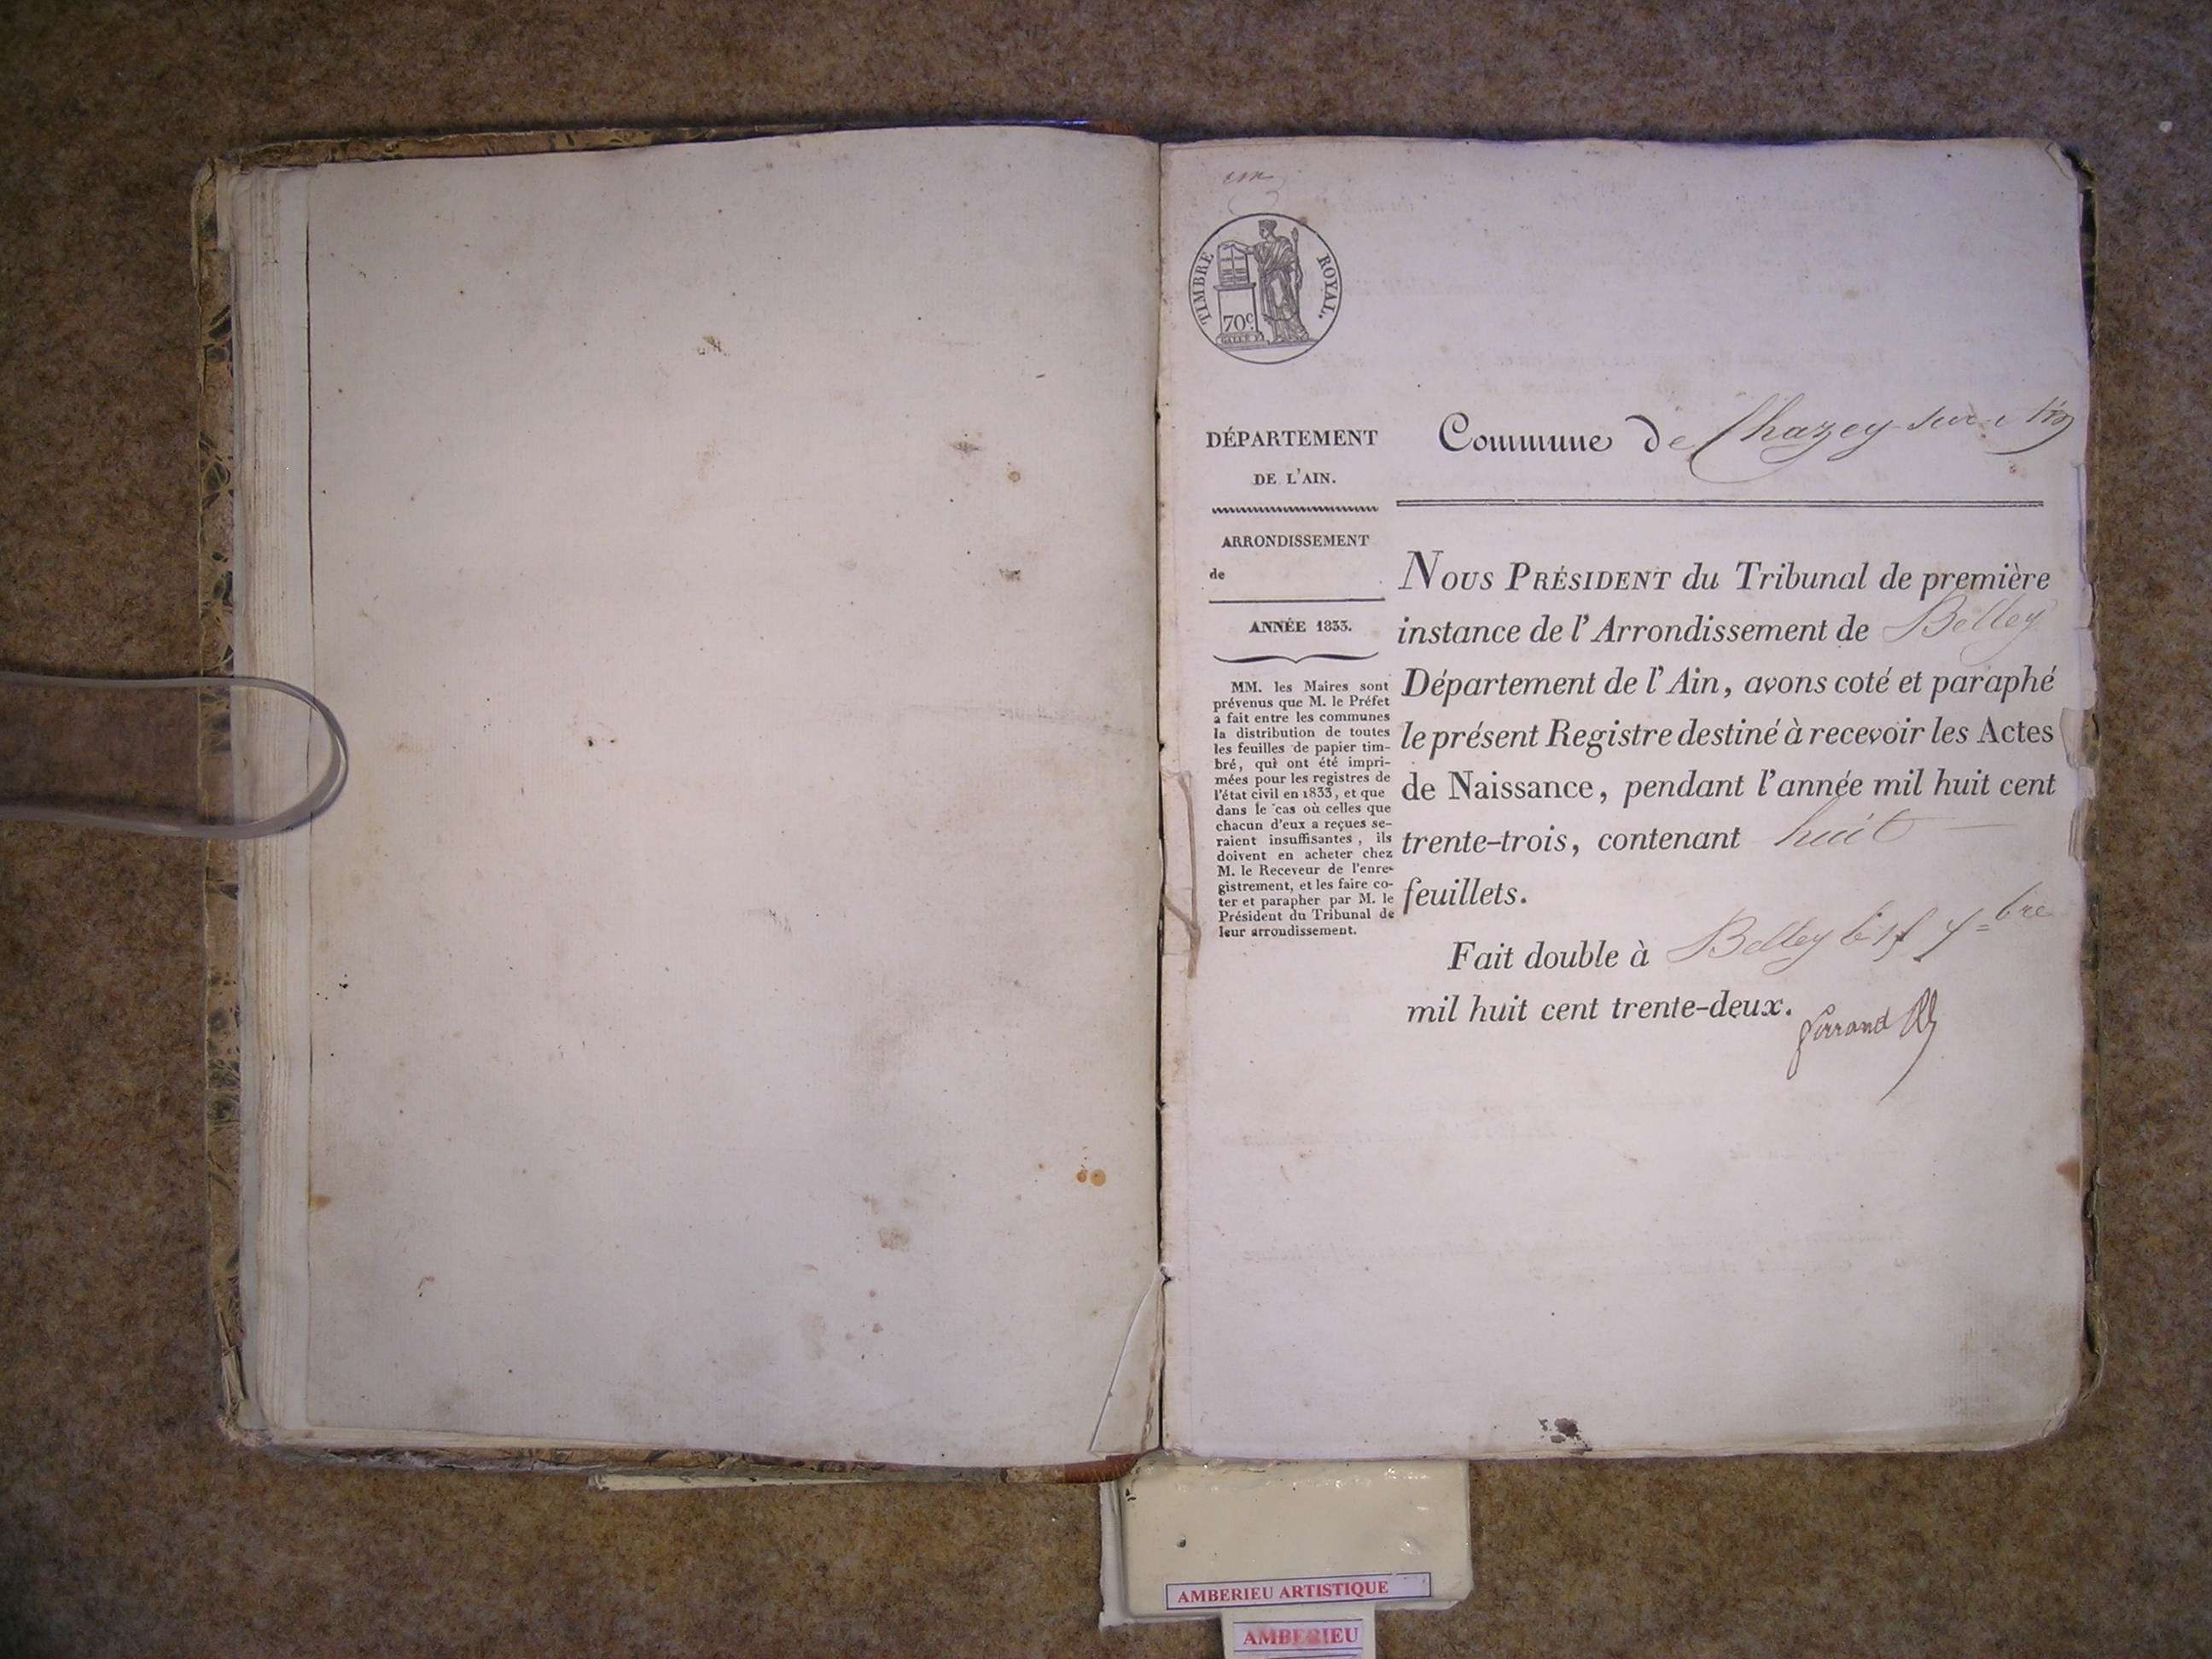 un
TIMBRE ROYAL.
70c
DÉPARTEMENT
DE L'AIN.
ARRONDISSEMENT
de
ANNÉE 1833.
MM. les Maires sont
prévenus que M. le Préfet
a fait entre les communes
la distribution de toutes
les feuilles de papier tim-
bré, qui ont été impri-
mées pour les registres de
l'état civil en 1833, et que
dans le cas où celles que
chacun d'eux a reçues se-
raient insuffisantes, ils
doivent en acheter chez
M. le Receveur de l'enre-
gistrement, et les faire co-
ter et parapher par M. le
Président du Tribunal de
leur arrondissement.
Commune de Chazey sur
NOUS PRÉSIDENT du Tribunal de première
instance de l'Arrondissement de Belley
Département de l'Ain, avons coté et paraphé
le présent Registre destiné à recevoir les Actes
de Naissance, pendant l'année mil huit cent
trente-trois, contenant huit
feuillets.
Fait double à Belley le bre
mil huit cent trente-deux.
AMBERIEU ARTISTIQUE
AMBERIEU